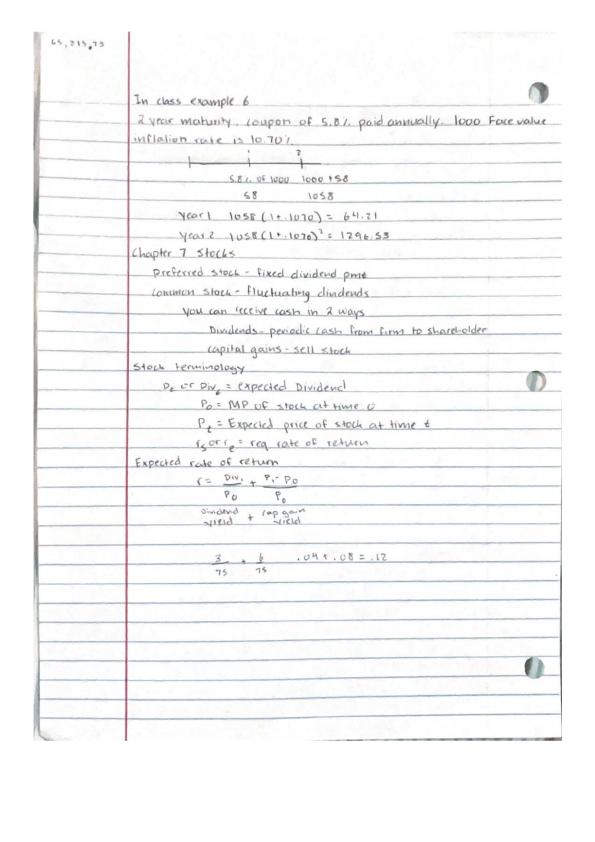 65,215,75
In class example 6
2 year maturity, coupon of 5.8% paid annually. 1000 Face value
inflation rate is 10.70%
1 2
5.8% of 1000 1000 + 58
58 1058
Year 1 1058 (1+.1070) = 64.21
Year 2 1058 (1+.1070)² = 1296.53
Chapter 7 Stocks
Preferred stock - fixed dividend pmt
Common stock - fluctuating dindends
You can receive cash in 2 ways
Dividends - periodic cash from firm to shareholder
capital gains - sell stock
Stock terminology
Dt or Divt = expected Dividend
P0 = MP of stock at time 0
Pt = Expected price of stock at time t
rs or re = req rate of return
Expected rate of return
r = Div1/P0 + P1-P0/P0
Dividend yield + cap gain yield
3/75 + 6/75 .04 + .08 = .12